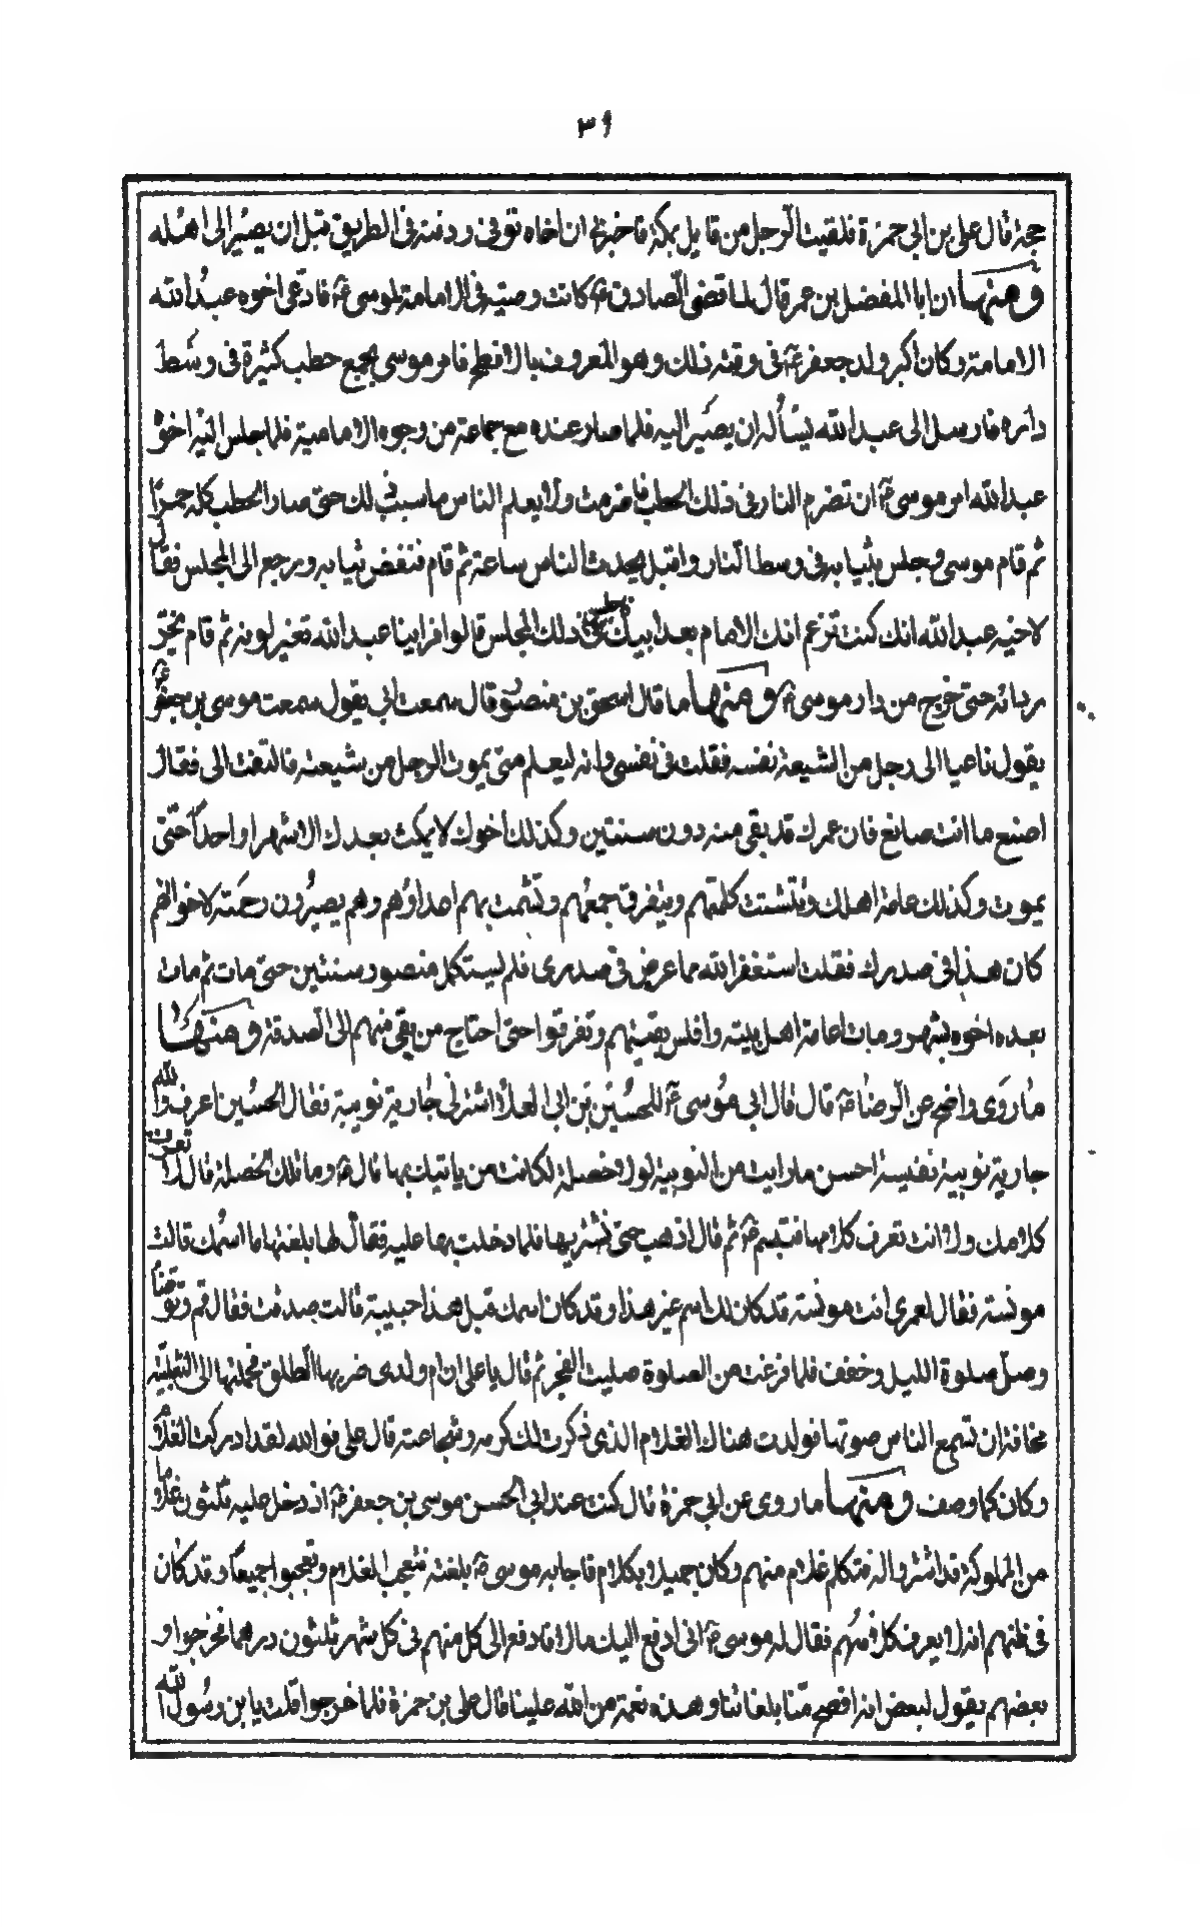 ٣٩
حجة قال علي بن ابي حمزة فلقيت الرجل من قابل بمكة فاخبرني ان اخاه توفي ودفنه في الطريق قبل ان يصير الى اهله
ومنها ان ابا المفضل بن عمر قال لما قضى الصادق ع كانت وصيته في الامامة لموسى ع فادعى اخوه عبد الله
الامامة وكان اكبر ولد جعفر ع في وقته ذلك وهو المعروف بالافطح فامر موسى بجمع حطب كثيرة في وسط
داره فارسل الى عبد الله يسأله ان يصير اليه فلما صار عنده مع جماعة من وجوه الامامية فلما جلس اليه اخوه
عبد الله امر موسى ع ان تضرم النار في ذلك الحطب فاضرمت ولا يعلم الناس ما سبب ذلك حتى صار الحطب كله جمرا
ثم قام موسى وجلس بثيابه في وسط النار واقبل يحدث الناس ساعة ثم قام فنفض ثيابه ورجع الى المجلس فقال
لاخيه عبد الله انك كنت تزعم انك الامام بعد ابيك فاجلس في ذلك المجلس قالوا فراينا عبد الله تغير لونه ثم قام يجر
بردائه حتى خرج من دار موسى ع ومنها ما قال اسحق بن منصور قال سمعت ابي يقول سمعت موسى بن جعفر ع
يقول ناعيا الى رجل من الشيعة نفسه فقلت في نفسي وانه ليعلم متى يموت الرجل من شيعته فالتفت الى فقال
اصنع ما انت صانع فان عمرك قد بقي منه دون سنتين وكذلك اخوك لا يمكث بعدك الا شهرا واحدا حتى
يموت وكذلك عامة اهلك وتتشتت كلمتهم ويتفرق جمعهم وتشمت بهم اعداؤهم وهم يصيرون رحمة لاخوانهم
كان هذا في صدرك فقلت استغفر الله مما عرض في صدري فلم يستكمل منصور سنتين حتى مات ثم مات
بعده اخوه بشهر ومات عامة اهل بيته وافلس بقيتهم وتفرقوا حتى احتاج من بقي منهم الى الصدقة ومنها
ما روى واضح عن الرضا ع قال قال ابي موسى ع للحسين بن ابي العلا اشتر لي جارية نوبية فقال الحسين اعرف والله
جارية نوبية نفيسة احسن ما رايت من النوبية لولا خصلة لكانت من ياتيك بها قال ع وما تلك الخصلة قال لا تعرف
كلامك ولا انت تعرف كلامها فتبسم ع ثم قال اذهب حتى تشتريها فلما دخلت بها عليه فقال لها بلغتها ما اسمك قالت
مونسة فقال لعمري انت مونسة قد كان لك اسم غير هذا وقد كان اسمك قبل هذا حبيبة قالت صدقت فقال قم وتوضأ
وصل صلوة الليل وخفف فلما فرغت من الصلوة صليت الفجر ثم قال يا علي ان ام ولدي ضربها الطلق فحملتها الى الثعلبية
مخافة ان تسمع الناس صوتها فولدت هناك الغلام الذي ذكرت لك كرمه وشجاعته قال علي فوالله لقد ادركت الغلام
وكان كما وصف ومنها ما روى عن ابي حمزة قال كنت عند ابي الحسن موسى بن جعفر ع اذ دخل عليه ثلثون غلاما
من المملوكة قد اشتروا له فتكلم غلام منهم وكان جميلا بكلام فاجابه موسى ع بلغته فتعجب الغلام وتعجبوا جميعا وقد كان
في ظنهم انه لا يعرف كلامهم فقال له موسى ع اني ادفع اليك مالا فادفع الى كل منهم في كل شهر ثلثون درهما فخرجوا و
بعضهم يقول لبعض انه افصح منا بلغاتنا وهذه نعمة من الله علينا قال علي بن حمزة فلما خرجوا قلت يا بن رسول الله